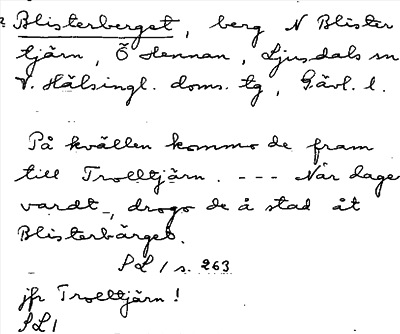 Blisterberget, berg N Blister
tjärn, Ö Hennan, Ljusdals sn
V. Hälsingl. doms. tg, Gävl. l.
På kvällen kommo de fram
till Trolltjärn. --- När dage
vardt, drogo de å stad åt
Blisterbärget.
SL 1 s. 263
jfr Trolltjärn!
SL 1